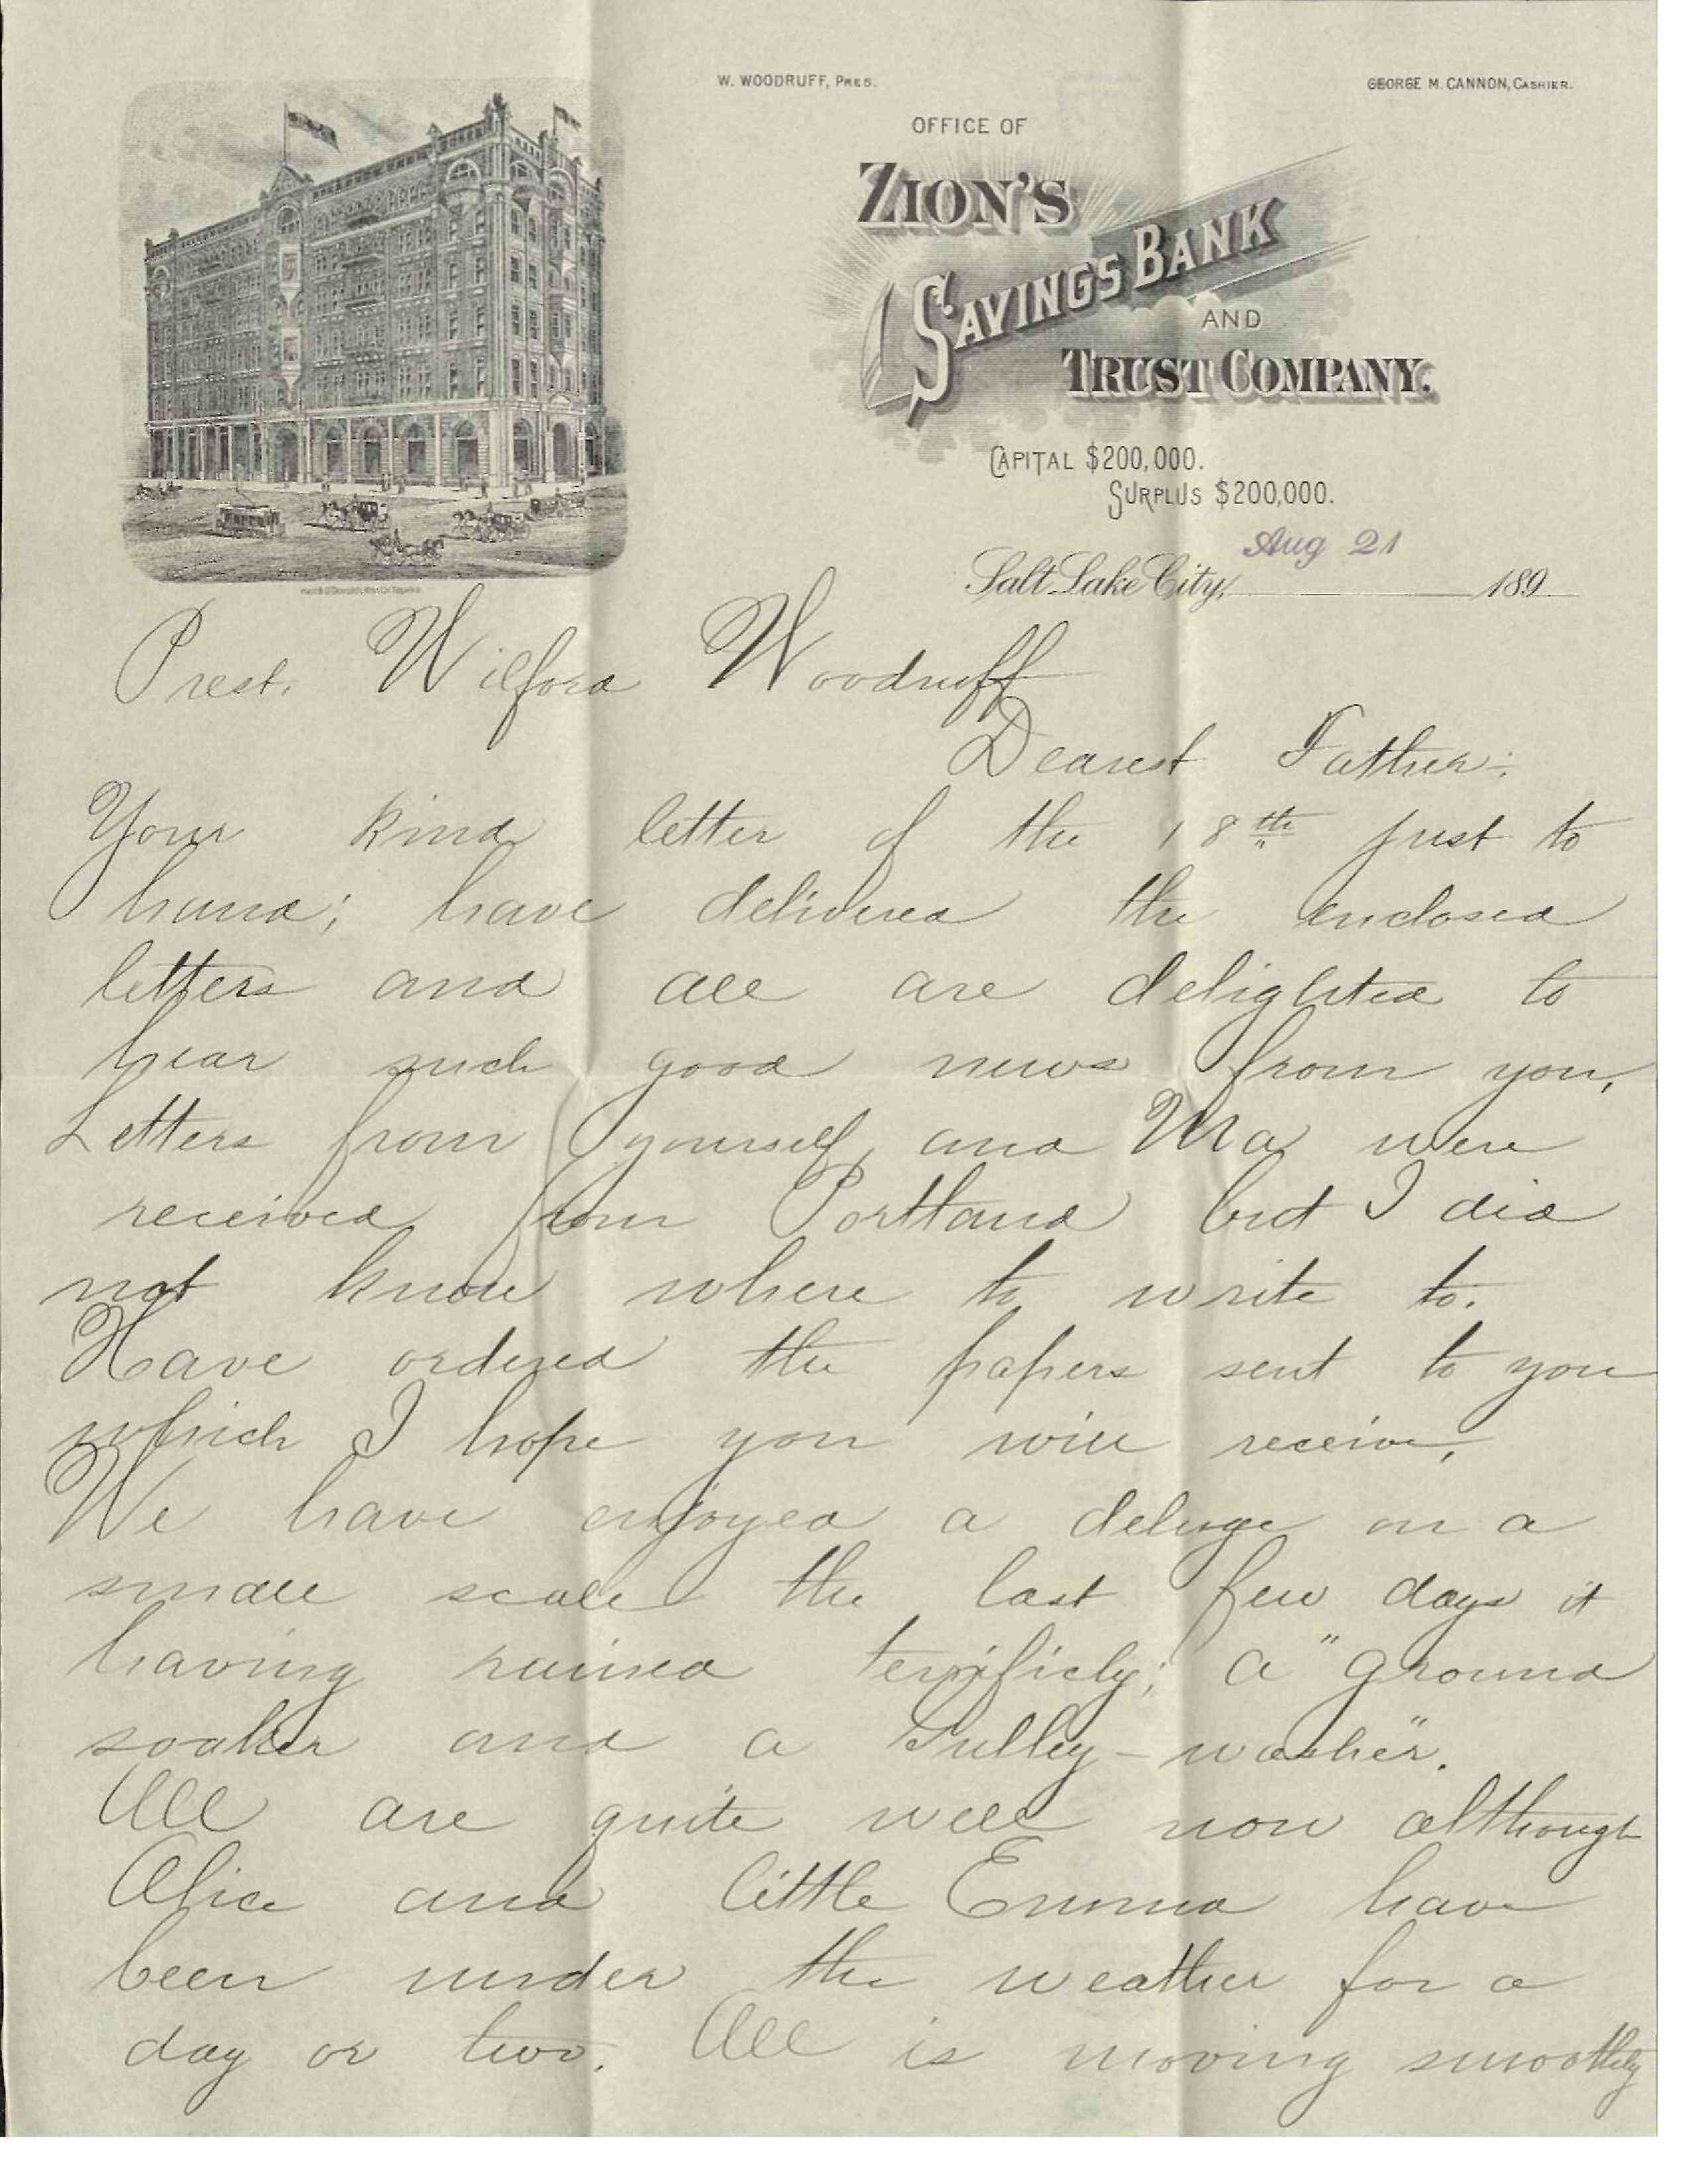 W. WOODRUFF, PRES.
GEORGE M. CANNON, CASHIER.
OFFICE OF
ZION'S
SAVINGS BANK
AND
TRUST COMPANY.
CAPITAL $200,000.
SURPLUS $200,000.
Aug 21
Salt Lake City, 189
Prest. Wilford Woodruff
Dearest Father:
Your kind letter of the 18th just to
hand; have delivered the enclosed
letters and all are delighted to
hear such good news from you.
Letters from yourself and Ma were
received from Portland but I did
not know where to write to.
Have ordered the papers sent to you
which I hope you will receive.
We have enjoyed a deluge on a
small scale the last few days it
having rained terrificly; a "ground
soaker and a Gulley-washer".
All are quite well now although
Alice and little Emma have
been under the weather for a
day or two. All is moving smoothly